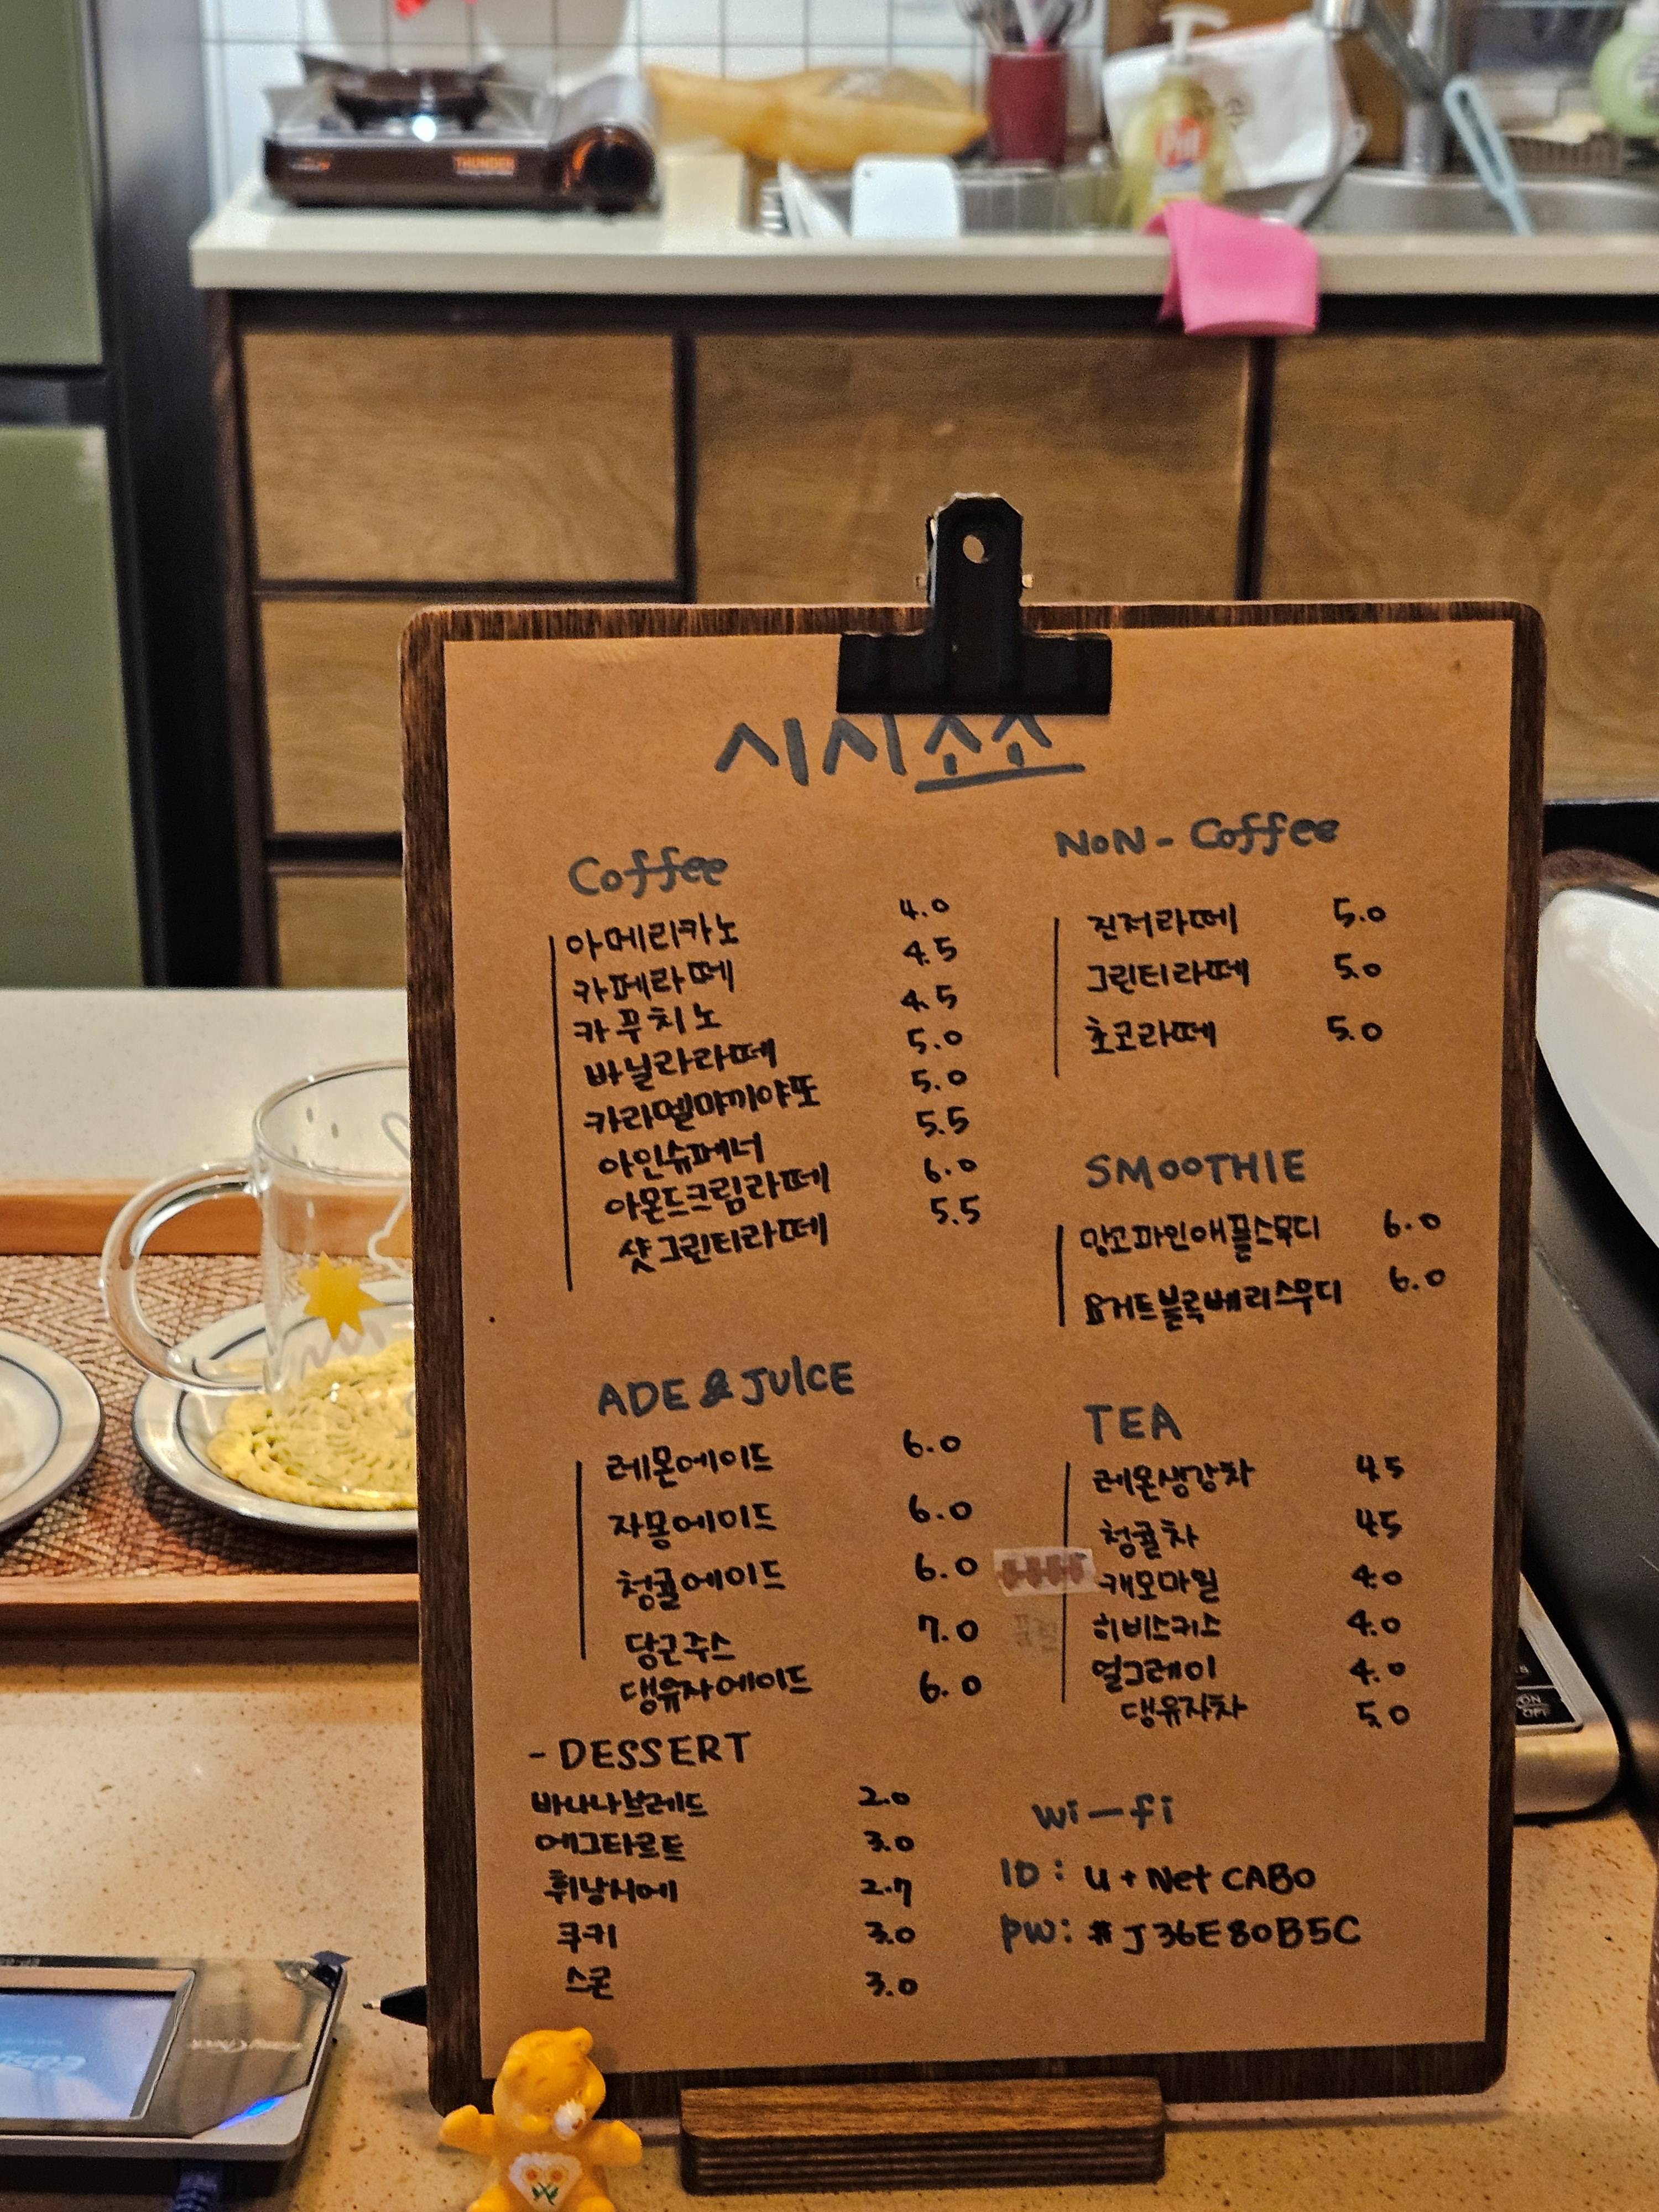 THUNDER
시시소소
Coffee
아메리카노 4.0
카페라떼 4.5
카푸치노 4.5
바닐라라떼 5.0
카라멜먀끼야또 5.0
아인슈페너 5.5
아몬드크림라떼 6.0
샷그린티라떼 5.5
NON - Coffee
진저라떼 5.0
그린티라떼 5.0
초코라떼 5.0
SMOOTHIE
망고파인애플스무디 6.0
요거트블루베리스무디 6.0
ADE & JUICE
레몬에이드 6.0
자몽에이드 6.0
청귤에이드 6.0
당근주스 7.0
댕유자에이드 6.0
TEA
레몬생강차 4.5
청귤차 4.5
캐모마일 4.0
히비스커스 4.0
얼그레이 4.0
댕유자차 5.0
- DESSERT
바나나브레드 2.0
에그타르트 3.0
휘낭시에 2.7
쿠키 3.0
스콘 3.0
wi-fi
ID : U+Net CAB0
PW: #J36E80B5C
ON
OFF